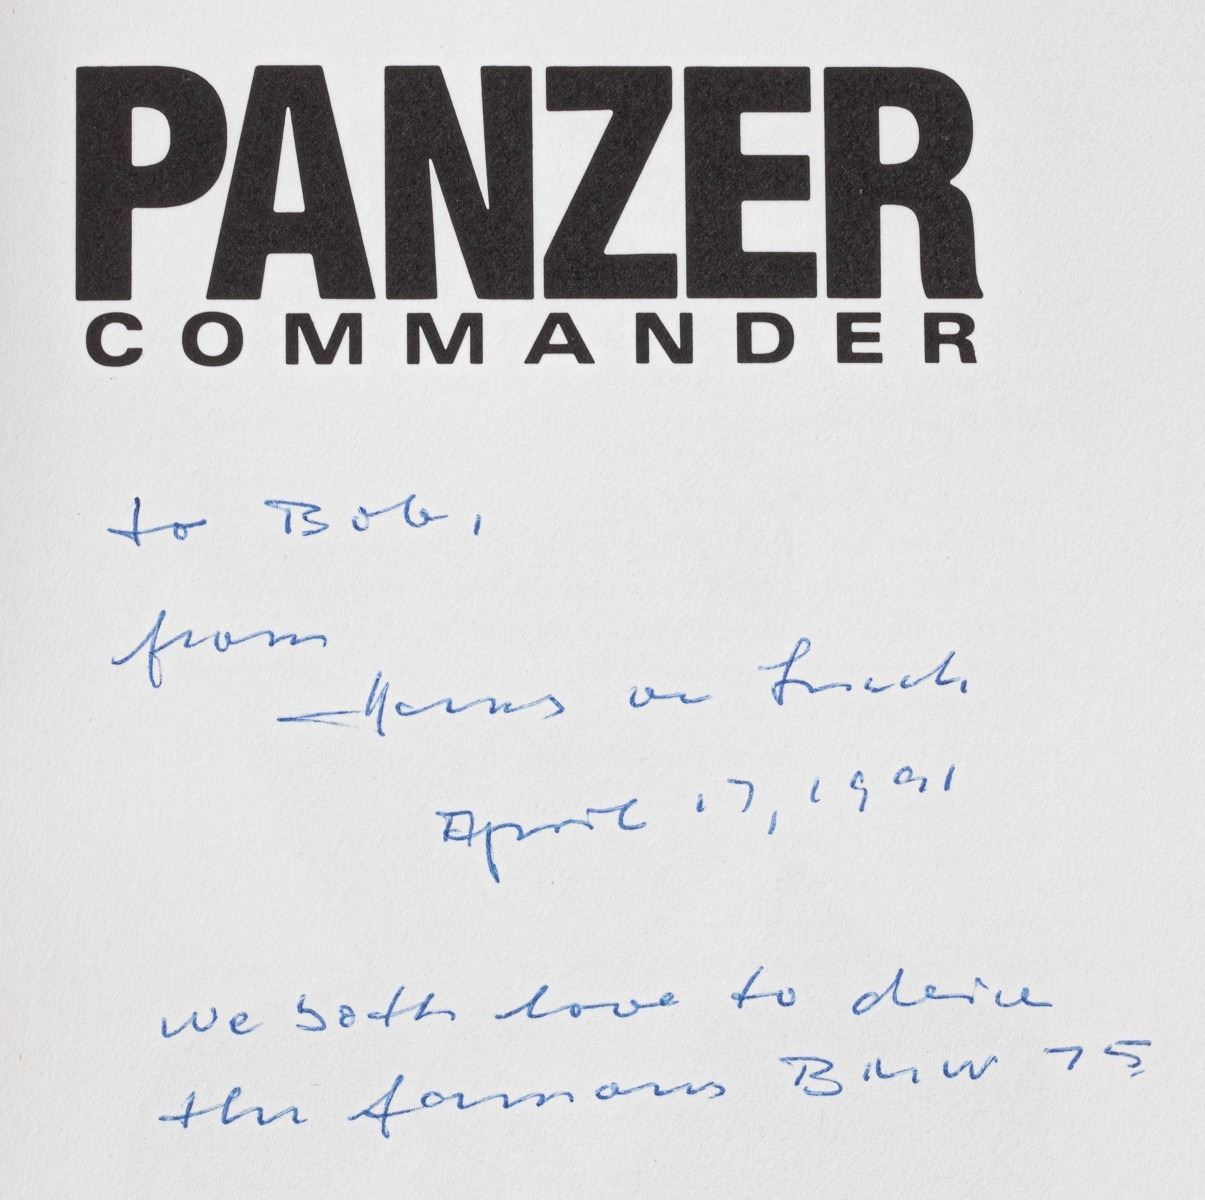 PANZER
COMMANDER
to Bob,
from
Hans von Luck
April 17, 1991
we both love to drive
the famous BMW 75